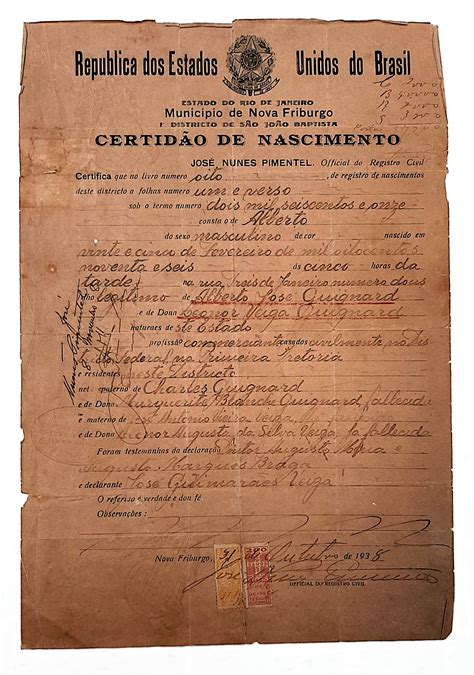 Republica dos Estados Unidos do Brasil
ESTADO DO RIO DE JANEIRO
Municipio de Nova Friburgo
1º DISTRICTO DE SÃO JOÃO BAPTISTA
CERTIDÃO DE NASCIMENTO
JOSÉ NUNES PIMENTEL. Official do Registro Civil
Certifica que no livro numero oito de registro de nascimentos
deste districto a folhas numero um e verso
sob o termo numero dois mil seiscentos e onze
consta o de Alberto
do sexo masculino de cor nascido em
vinte e cinco de Fevereiro de mil oitocentos
noventa e seis ás cinco horas da
tarde na rua Treis de Janeiro numero dous
filho legitimo de Alberto José Guignard
e de Dona Leonor Veiga Guignard
naturaes de ste Estado
profissão commerciante casados civilmente no Dis
Federal na Primeira Pretoria
e residentes neste Districto
neto paterno de Charles Guignard
e de Dona Marguerite Blanche Guignard, fallecida
e materno de José Antonio Vieira Veiga
e de Dona Leonor Augusta da Silva Veiga, já fallecida
Foram testemunhas da declaração Augusto Maria e
Augusto Marques Braga
e declarante José Guimarães Veiga
O referido é verdade e dou fé
Observações :
Nova Friburgo, 31 de Outubro de 1938
OFFICIAL DO REGISTRO CIVIL